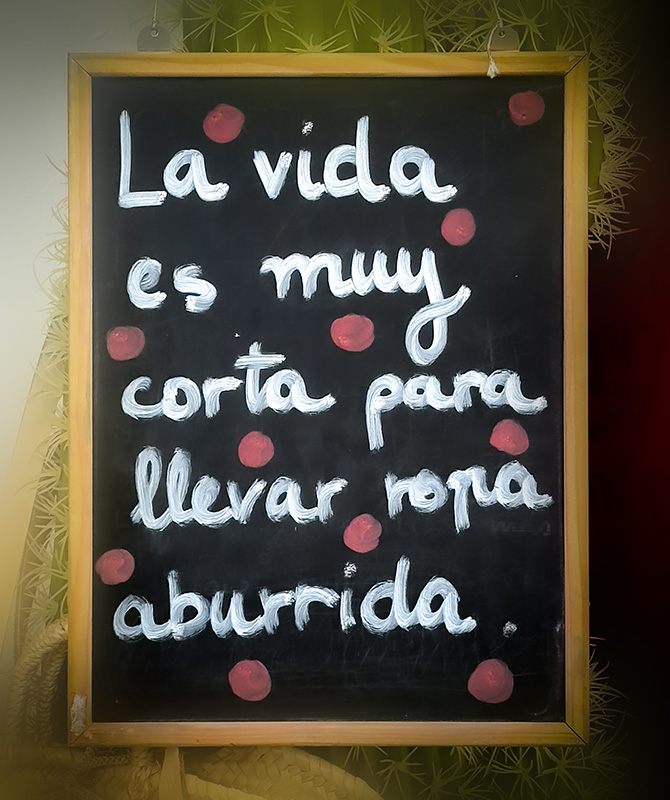 La vida
es muy
corta para
llevar ropa
aburrida.